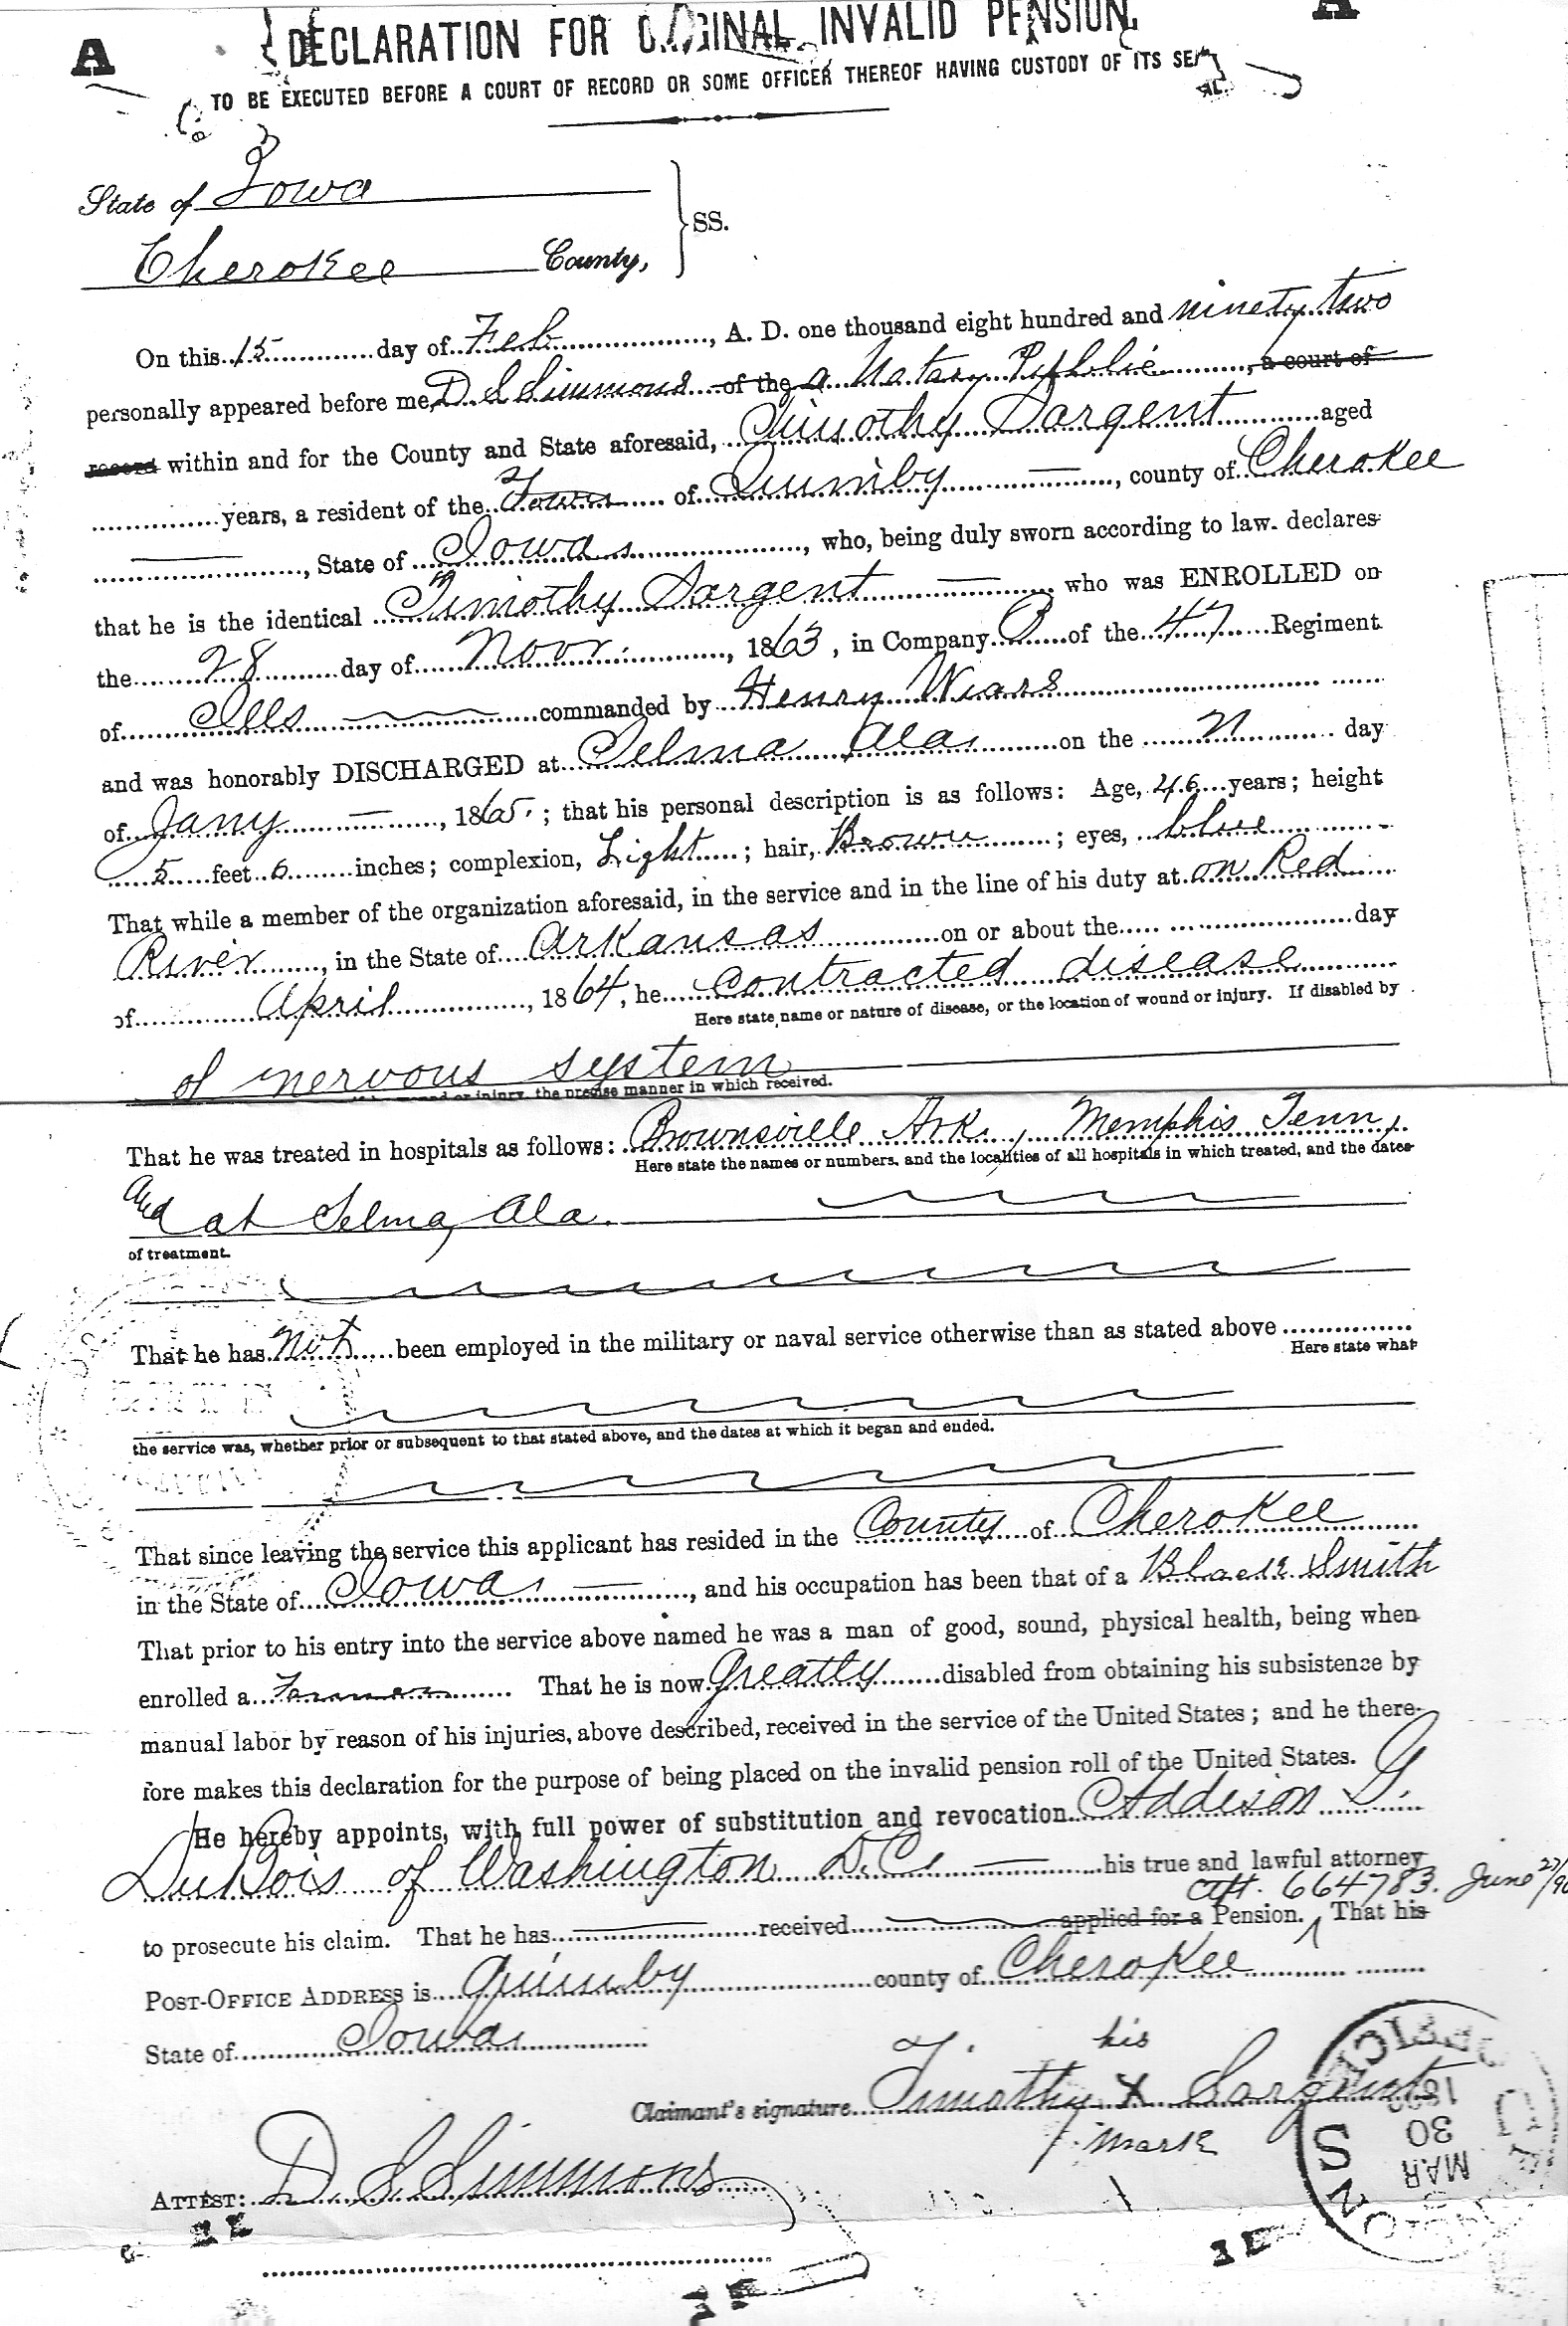 A A
DECLARATION FOR ORIGINAL INVALID PENSION.
TO BE EXECUTED BEFORE A COURT OF RECORD OR SOME OFFICER THEREOF HAVING CUSTODY OF ITS SEAL
State of Iowa
Cherokee County, } SS.
On this 15 day of Feb, A. D. one thousand eight hundred and ninety two
personally appeared before me, D S Simmons of the a Notary Public, a court of
record within and for the County and State aforesaid, Timothy Sargent aged
years, a resident of the Town of Quimby, county of Cherokee
, State of Iowa, who, being duly sworn according to law, declares
that he is the identical Timothy Sargent who was ENROLLED on
the 28 day of Nov, 1863, in Company B of the 47 Regiment
of Ills commanded by Henry Wiars
and was honorably DISCHARGED at Selma Ala on the 21 day
of Jany, 1865; that his personal description is as follows: Age, 46 years; height
5 feet 6 inches; complexion, Light; hair, Brown; eyes, blue
That while a member of the organization aforesaid, in the service and in the line of his duty at on Red
River, in the State of Arkansas on or about the day
of April, 1864, he contracted disease
Here state name or nature of disease, or the location of wound or injury. If disabled by
of nervous system
or injury, the precise manner in which received.
That he was treated in hospitals as follows: Brownsville Ark., Memphis Tenn,
Here state the names or numbers, and the localities of all hospitals in which treated, and the dates
and at Selma, Ala.
of treatment.
That he has not been employed in the military or naval service otherwise than as stated above
Here state what
the service was, whether prior or subsequent to that stated above, and the dates at which it began and ended.
That since leaving the service this applicant has resided in the County of Cherokee
in the State of Iowa, and his occupation has been that of a Black Smith
That prior to his entry into the service above named he was a man of good, sound, physical health, being when
enrolled a Farmer. That he is now Greatly disabled from obtaining his subsistence by
manual labor by reason of his injuries, above described, received in the service of the United States; and he there-
fore makes this declaration for the purpose of being placed on the invalid pension roll of the United States.
He hereby appoints, with full power of substitution and revocation Addison G.
DuBois of Washington D.C. his true and lawful attorney
664783. June
to prosecute his claim. That he has received applied for a Pension. That his
POST-OFFICE ADDRESS is Quimby county of Cherokee
State of Iowa
T. his
Claimant's signature Timothy X Sargent
mark
ATTEST: D S Simmons
MAR 30